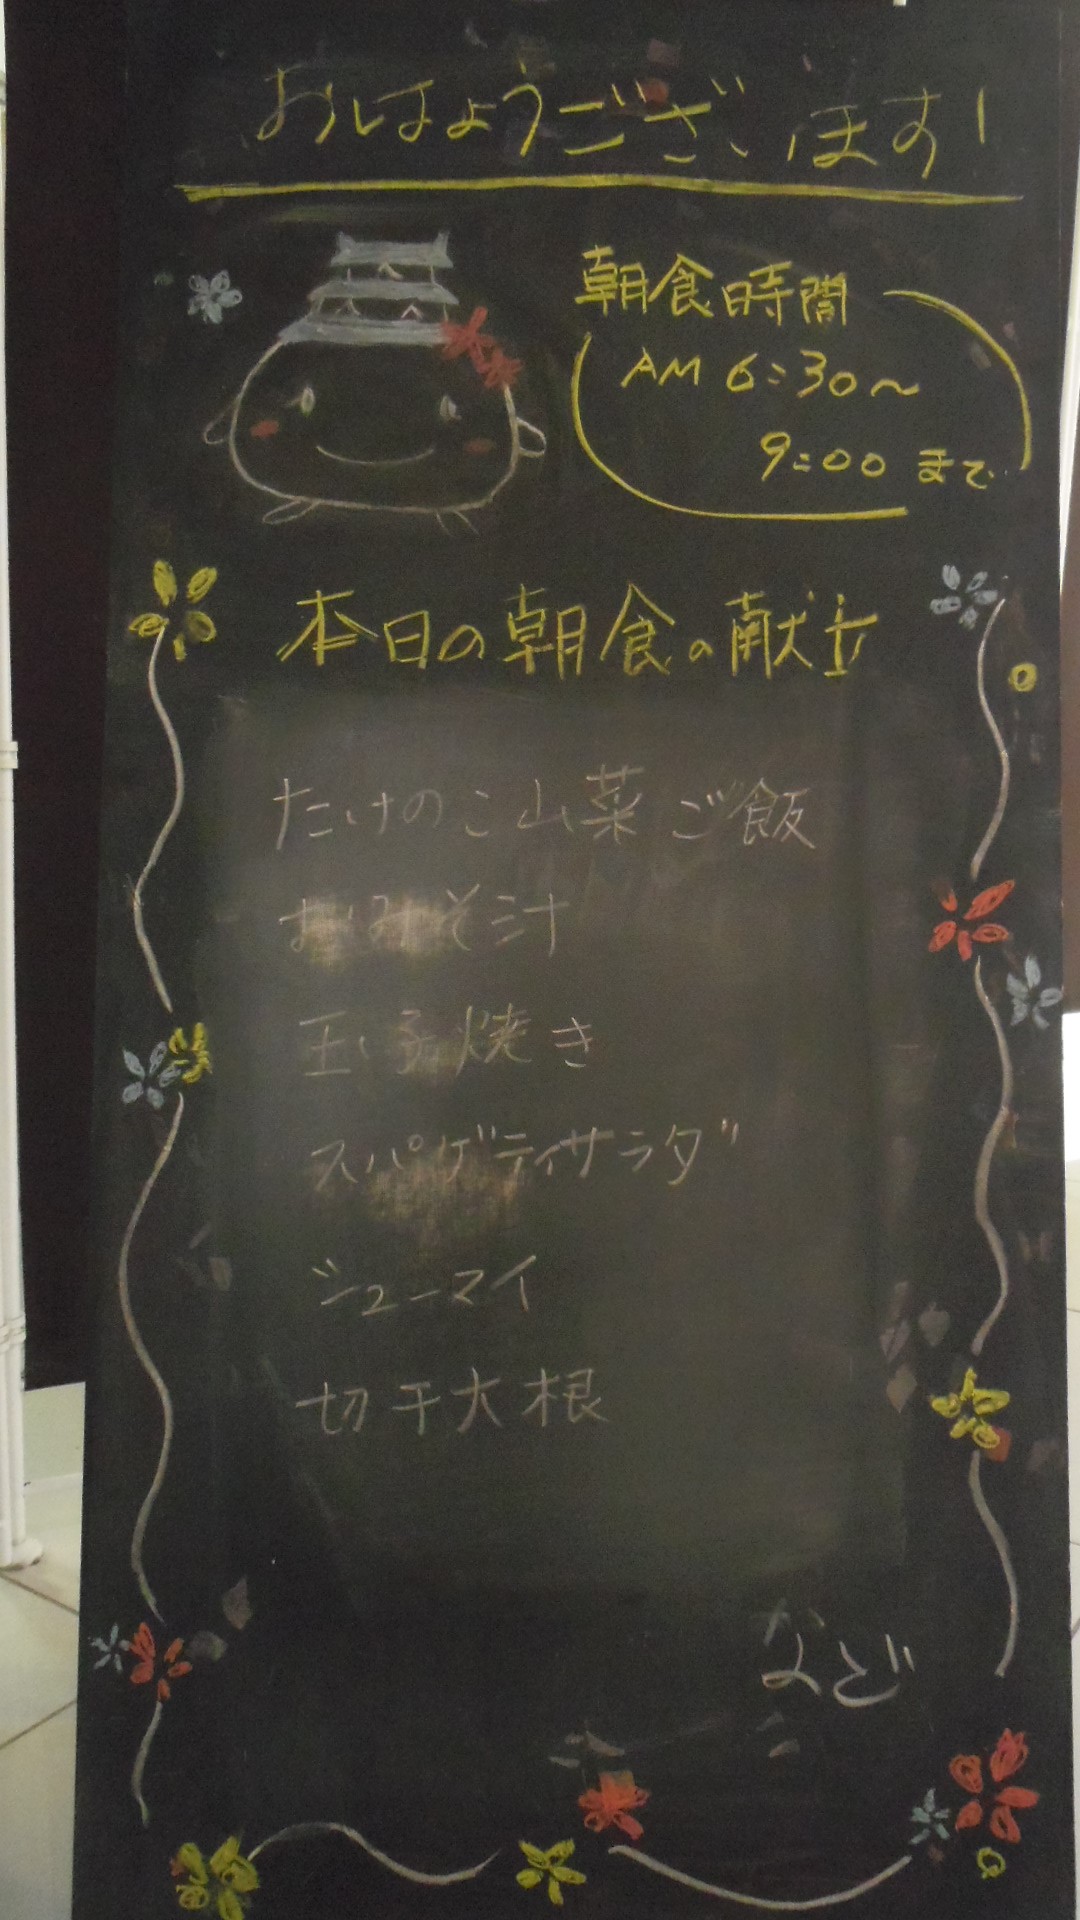 おはようございます!
朝食時間
AM 6:30～
9:00 まで
本日の朝食の献立
たけのこ山菜ご飯
おみそ汁
玉子焼き
スパゲティサラダ
シューマイ
切干大根
など